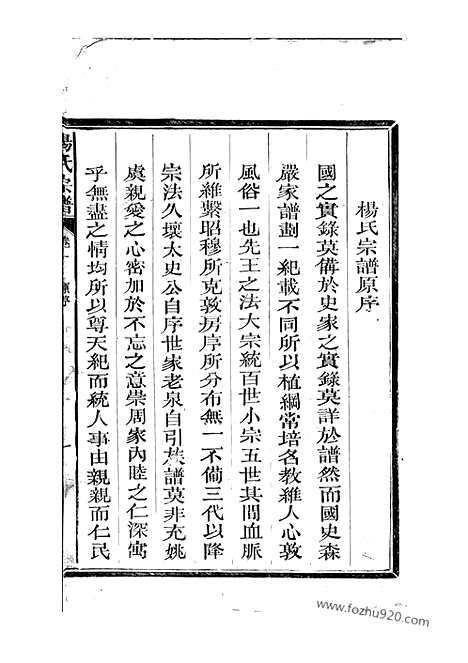 楊氏宗譜原序
國之實錄莫備於史家之實錄莫詳於譜然而國史森
嚴家譜劃一紀載不同所以植綱常培名教維人心敦
風俗一也先王之法大宗統百世小宗五世其間血脈
所維繫昭穆所克敦房序所分布無一不備三代以降
宗法久壞太史公自序世家老泉自引族譜莫非充姚
虞親愛之心密加於不忘之意崇周家內睦之仁深寓
乎無盡之情均所以尊天紀而統人事由親親而仁民
楊氏宗譜 卷一 原序 一
www.fozhu920.com